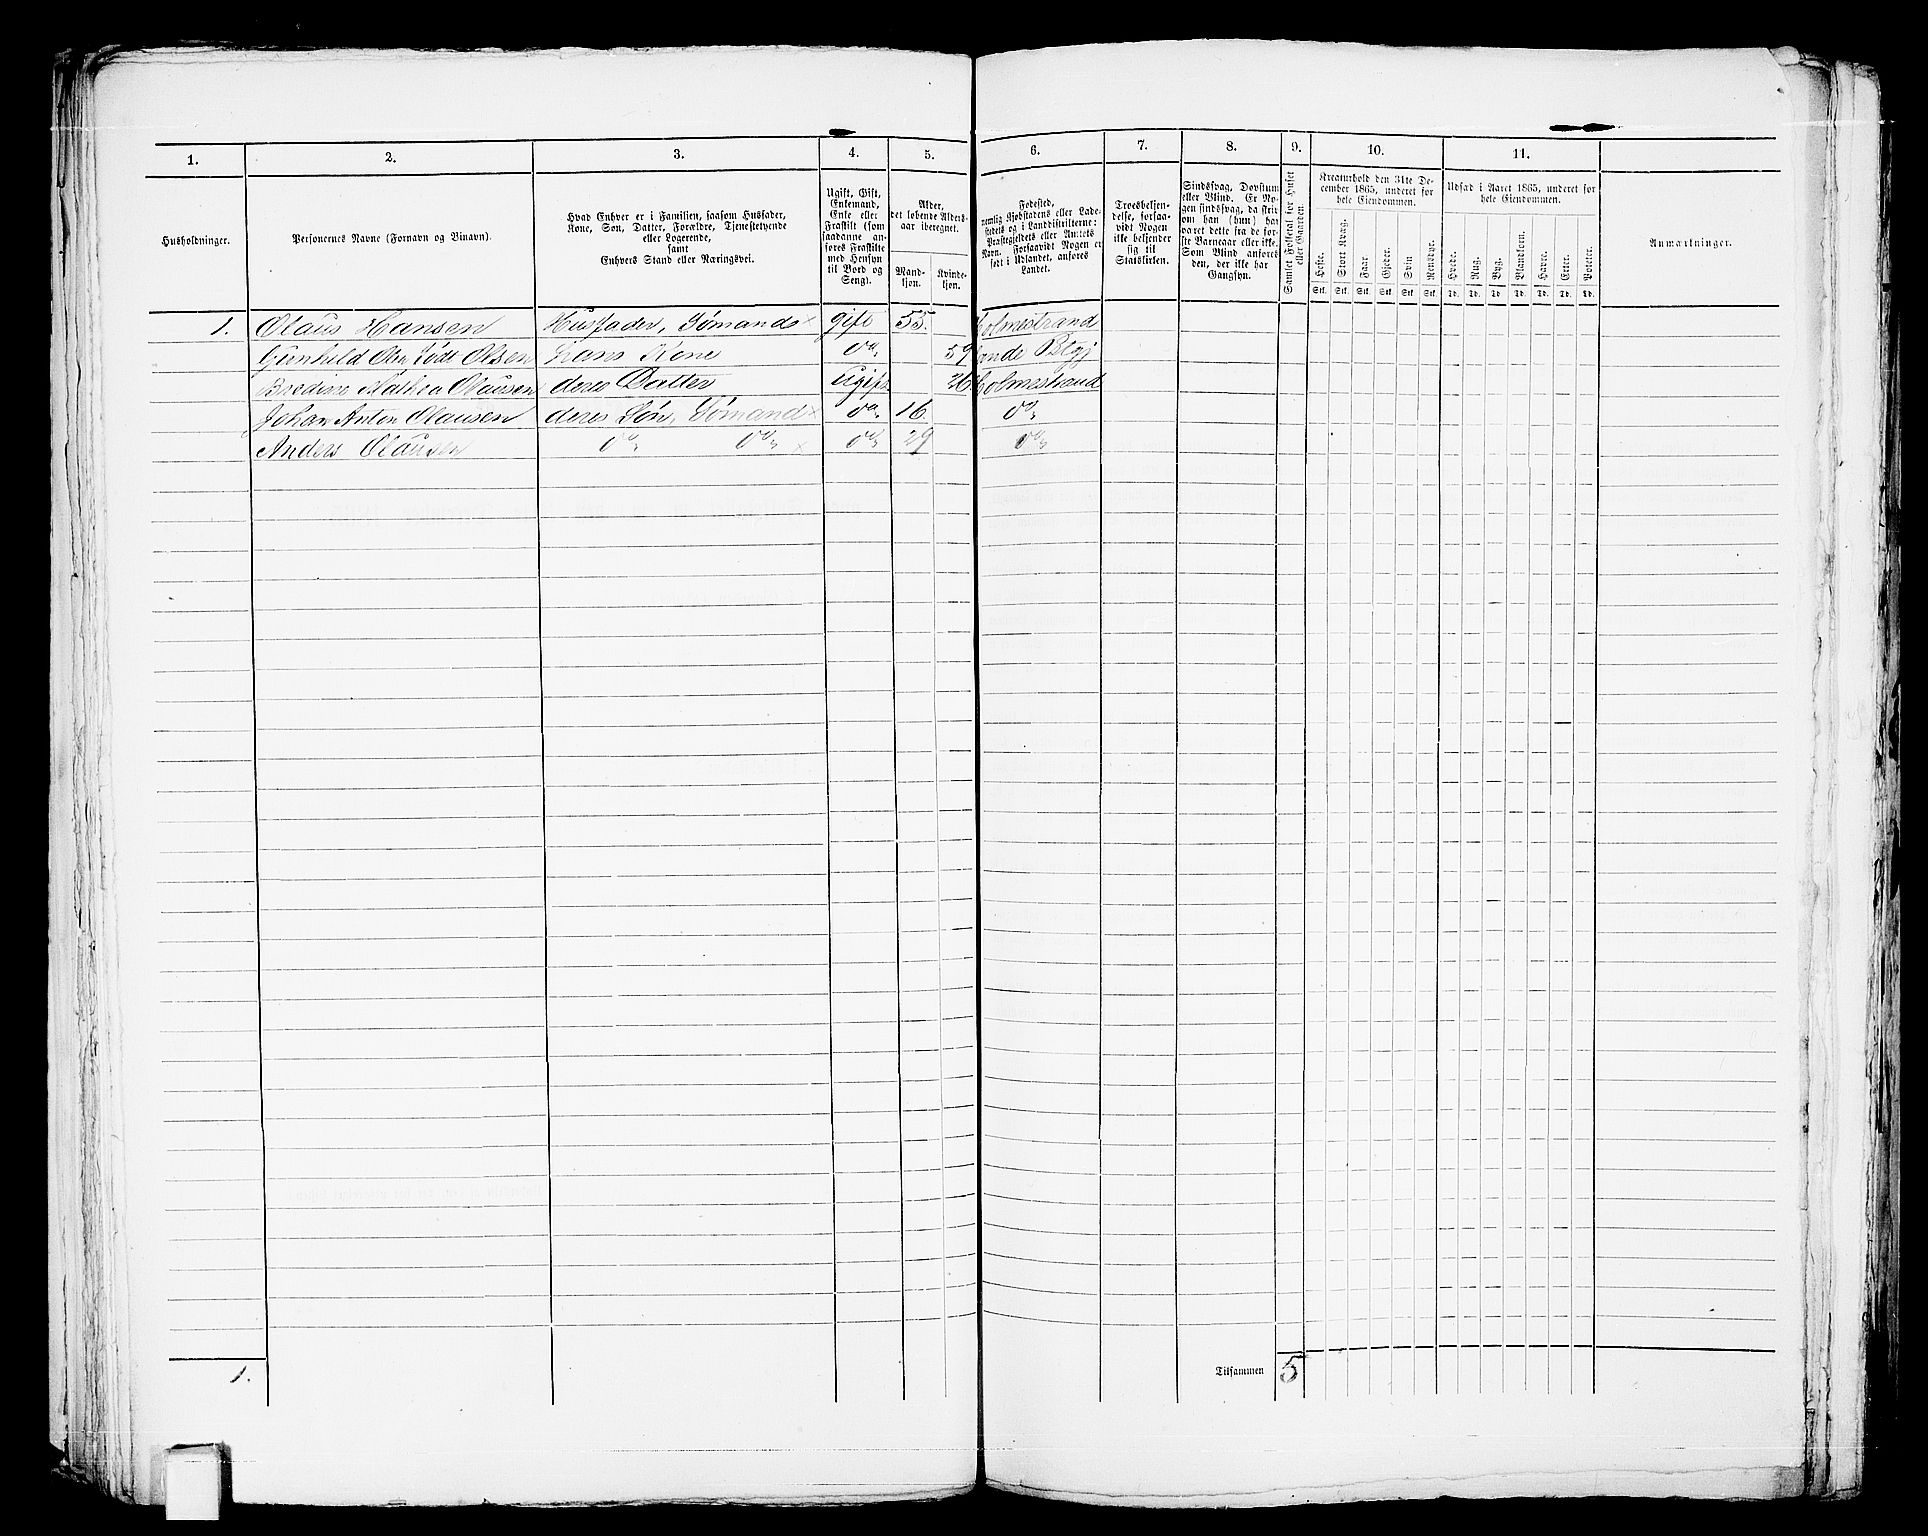 1. 2. 3. 4. 5. 6. 7. 8. 9. 10. 11.
Husholdninger.
Personernes Navne (Fornavn og Binavn).
Hvad Enhver er i Familien, saasom Husfader,
Kone, Søn, Datter, Forældre, Tjenestetyende
eller Logerende,
samt
Enhvers Stand eller Næringsvei.
Ugift, Gift,
Enkemand,
Enke eller
Fraskilt (som
saadanne an-
føres Fraskilte
med Hensyn
til Bord og
Seng).
Alder,
det løbende Alders-
aar iberegnet.
Mand-
kjøn.
Kvinde-
kjøn.
Fødested,
nemlig Kjøbstadens eller Lade-
stedets og i Landdistrikterne:
Præstegjeldets eller Annexets
Navn. Forsaavidt Nogen er
født i Udlandet, anføres
Landet.
Troesbekjen-
delse, forsaa-
vidt Nogen
ikke bekjender
sig til
Statskirken.
Sindssvag, Døvstum
eller Blind. Er No-
gen sindssvag, da skri-
ves om han (hun) har
været dette fra de før-
ste Barneaar eller ikke.
Som Blind anføres
den, der ikke har
Gangsyn.
Samlet Folketal for Huset
eller Gaarden.
Kreaturhold den 31te De-
cember 1865, underet for
hele Eiendommen.
Heste. Stort Kvæg. Faar. Gjeder. Svin Rensdyr.
Stk. Stk. Stk. Stk. Stk. Stk.
Udsæd i Aaret 1865, underet for
hele Eiendommen.
Hvede. Rug. Byg. Blandkorn. Havre. Erter. Poteter.
Td. Td. Td Td. Td. Td. Td.
Anmærkninger.
1. Olaus Hansen Husfader, Sømand × gift 55. Holmestrand
Gunhild Olea født Olsen hans Kone do 59 Sande Ptgj
Bredine Mathea Olausen deres Datter Ugift 26 Holmestrand
Johan Anton Olausen deres Søn, Sømand × do 16 do
Anders Olausen do do × do 29 do
1. Tilsammen 5